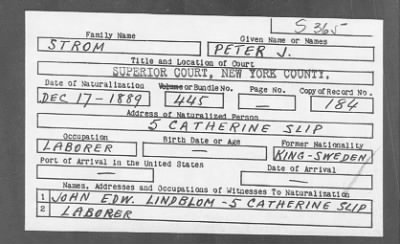 S 365
Family Name Given Name or Names
STROM PETER J.
Title and Location of Court
SUPERIOR COURT, NEW YORK COUNTY.
Date of Naturalization Volume or Bundle No. Page No. Copy of Record No.
DEC 17-1889 445 — 184
Address of Naturalized Person
5 CATHERINE SLIP
Occupation Birth Date or Age Former Nationality
LABORER — KING-SWEDEN
Port of Arrival in the United States Date of Arrival
— —
Names, Addresses and Occupations of Witnesses To Naturalization
1 JOHN EDW. LINDBLOM -5 CATHERINE SLIP
2 LABORER